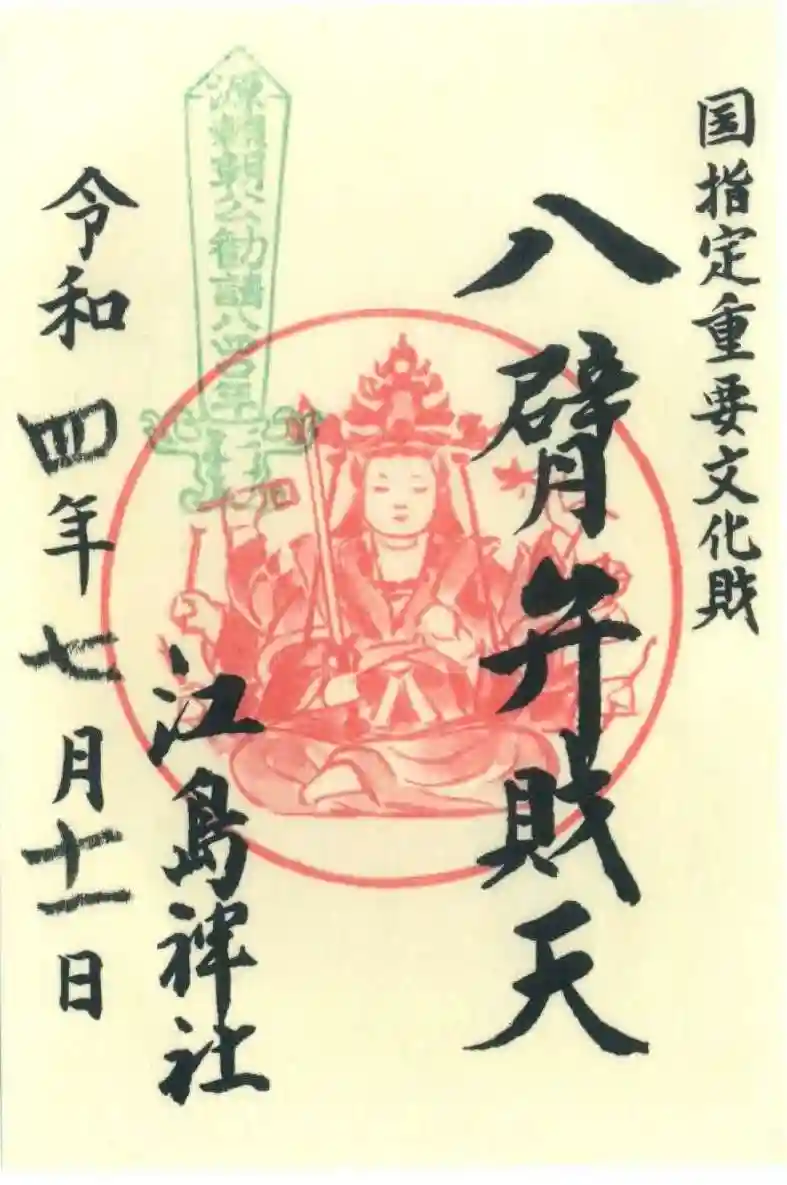 国指定重要文化財
八臂弁財天
源頼朝公勧請八四〇年
江島神社
令和四年七月十一日